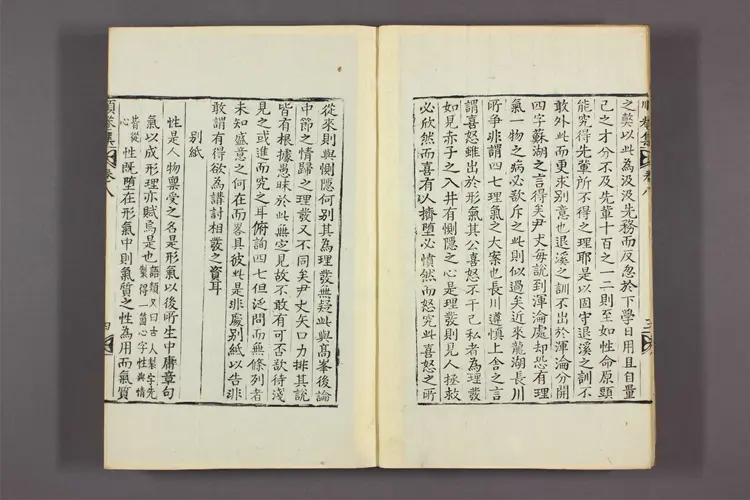 之奬以此為汲汲先務而反忽於下學日用且自量
己之才分不及先輩十百之一二則至如性命原頭
能究得先輩所不得之理耶是以固守退溪之訓不
敢外此而更求別意也退溪之訓不出於渾淪分開
四字蘇湖之言得矣尹丈每說到渾淪處却恐有理
氣一物之病必欲斥之此則似過矣近來龍湖長川
所爭非謂四七理氣之大案也長川遵愼上舍之言
謂喜怒雖出於形氣其公喜怒不干己私者為理發
如見赤子之入井有惻隱之心是理發則見人拯救
必欣然而喜有人擠墮必憤然而怒究此喜怒之所
從來則與惻隱何別其為理發無疑此與高峯後論
中節之情歸之理發又不同矣尹丈矢口力排其說
皆有根據愚昧於此無定見故不敢有可否欲待淺
見之或進而究之耳俯詢四七但泛問而無條列者
未知盛意之何在而畧具彼此是非處別紙以告非
敢謂有得欲為講討相發之資耳
別紙
性是人物稟受之名是形氣以後所生中庸章句
氣以成形理亦賦焉是也語類又曰古人製字先製得一箇心字性與情
皆從心性既墮在形氣中則氣質之性為用而氣質
順菴集 卷八 四